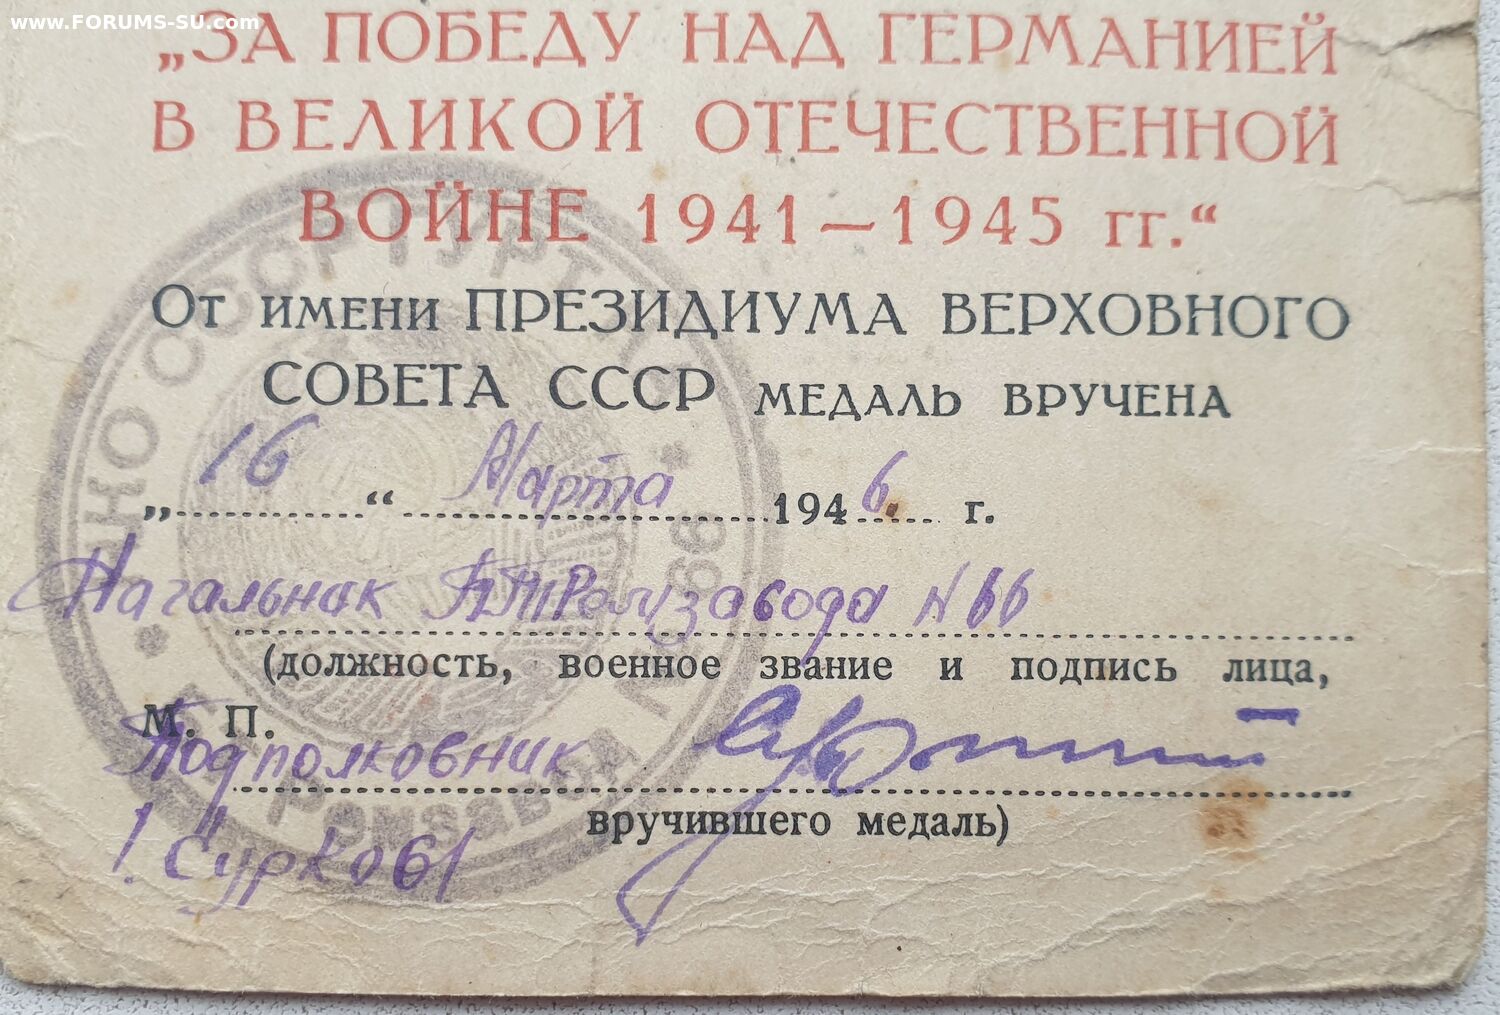 www.FORUMS-SU.com
„ЗА ПОБЕДУ НАД ГЕРМАНИЕЙ
В ВЕЛИКОЙ ОТЕЧЕСТВЕННОЙ
ВОЙНЕ 1941—1945 гг.“
От имени ПРЕЗИДИУМА ВЕРХОВНОГО
СОВЕТА СССР МЕДАЛЬ ВРУЧЕНА
„16“ Марта 1946 г.
Начальник БТРемзавода N 66
(должность, военное звание и подпись лица,
М. П.
Подполковник
вручившего медаль)
/Сурков/
НКО СССР ГУРТ
Ремзавод № 66